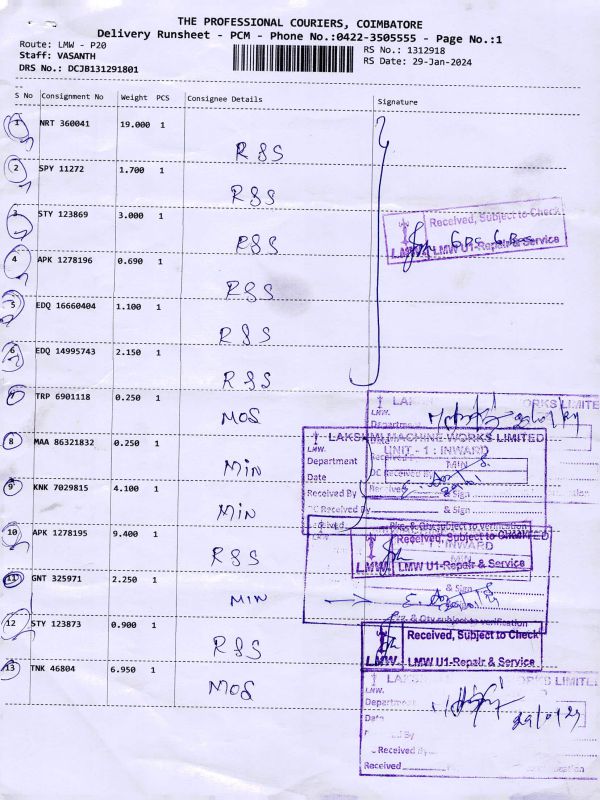 THE PROFESSIONAL COURIERS, COIMBATORE
Delivery Runsheet - PCM - Phone No.:0422-3505555 - Page No.:1
Route: LMW - P20
RS No.: 1312918
Staff: VASANTH
RS Date: 29-Jan-2024
DRS No.: DCJB131291801
S No Consignment No Weight PCS Consignee Details Signature
1 NRT 360041 19.000 1
R&S
2 SPY 11272 1.700 1
R&S
3 STY 123869 3.000 1
R&S
Received, Subject to Check
LMW LMW U1-Repair & Service
4 APK 1278196 0.690 1
R&S
5 EDQ 16660404 1.100 1
R&S
6 EDQ 14995743 2.150 1
R&S
7 TRP 6901118 0.250 1
MOS
LAKSHMI MACHINE WORKS LIMITED
UNIT - 1 : INWARD
LMW.
Department MIN
Date
Received By & Sign
8 MAA 86321832 0.250 1
MIN
9 KNK 7029815 4.100 1
MIN
10 APK 1278195 9.400 1
R&S
Received, Subject to Check
LMW LMW U1-Repair & Service
11 GNT 325971 2.250 1
MIN
& Qty subject to verification
12 STY 123873 0.900 1
R&S
Received, Subject to Check
LMW LMW U1-Repair & Service
13 TNK 46804 6.950 1
MOS
LMW.
Department
Date 29/01/24
Received By
Received